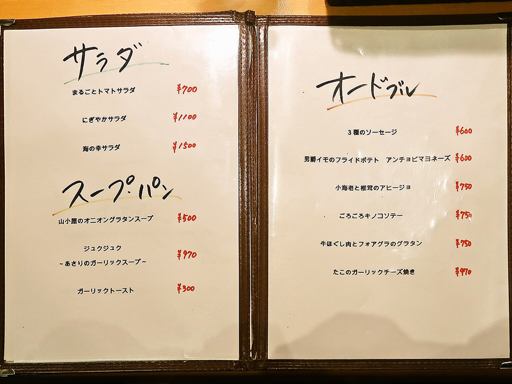 サラダ
まるごとトマトサラダ ¥700
にぎやかサラダ ¥1100
海の幸サラダ ¥1500
スープ・パン
山小屋のオニオングラタンスープ ¥500
ジュクジュク
~あさりのガーリックスープ~ ¥970
ガーリックトースト ¥300
オードブル
3種のソーセージ ¥600
男爵イモのフライドポテト アンチョビマヨネーズ ¥600
小海老と椎茸のアヒージョ ¥750
ごろごろキノコソテー ¥750
牛ほぐし肉とフォアグラのグラタン ¥750
たこのガーリックチーズ焼き ¥970